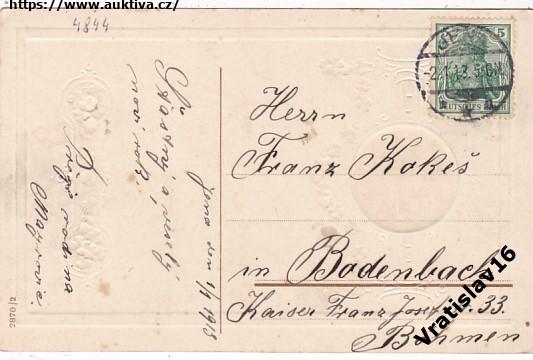 https://www.auktiva.cz/
4844
Šťastný a veselý
nový rok
Přeje rodina
Jena den 1/1 1913
2870/2
5
JENA
-2.1.13. 5-6N
Herrn
Franz Kokeš
in Bodenbach
Kaiser Franz Josef 33.
Böhmen
Vratislav16